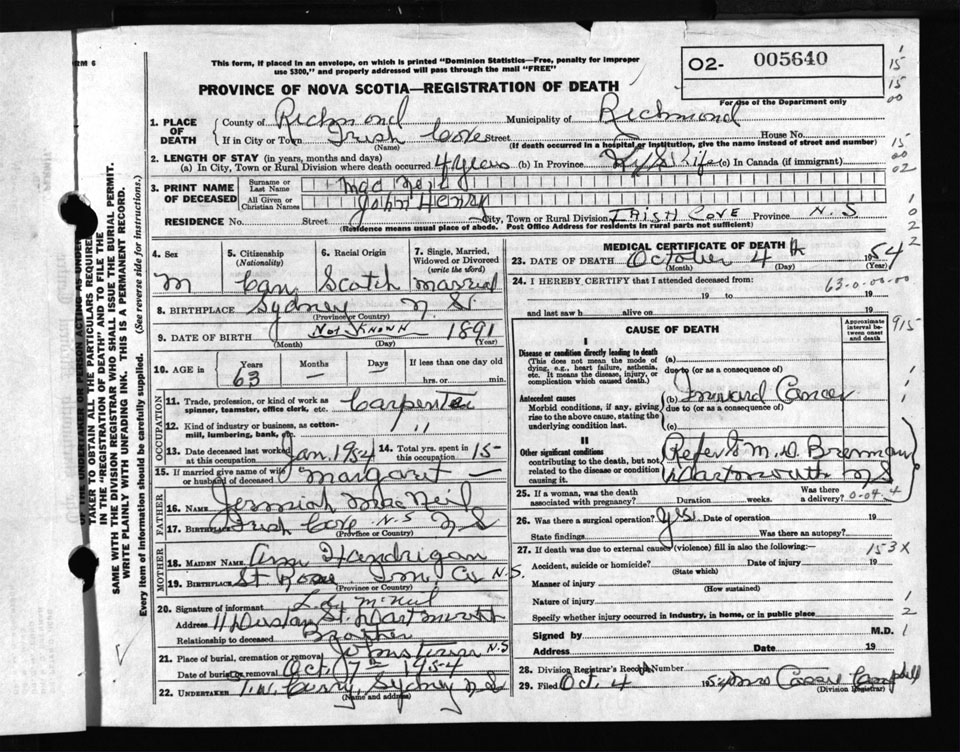 RM 6
This form, if placed in an envelope, on which is printed "Dominion Statistics—Free, penalty for improper
use $300," and properly addressed will pass through the mail "FREE"
O2- 005640
For use of the Department only
PROVINCE OF NOVA SCOTIA—REGISTRATION OF DEATH
1. PLACE OF DEATH County of Richmond Municipality of Richmond
If in City or Town Irish Cove Street House No.
(Name) (If death occurred in a hospital or institution, give the name instead of street and number)
2. LENGTH OF STAY (in years, months and days)
(a) In City, Town or Rural Division where death occurred 4 years (b) In Province Life (c) In Canada (if immigrant)
3. PRINT NAME OF DECEASED Surname or Last Name Mac Neil
All Given or Christian Names John Henry
RESIDENCE No. Street City, Town or Rural Division IRISH COVE Province N. S
(Residence means usual place of abode. Post Office Address for residents in rural parts not sufficient)
4. Sex M
5. Citizenship (Nationality) Can
6. Racial Origin Scotch
7. Single, Married, Widowed or Divorced (write the word) married
8. BIRTHPLACE Sydney N. S.
(Province or Country)
9. DATE OF BIRTH Not Known 1891
(Month) (Day) (Year)
10. AGE in Years Months Days If less than one day old
63 hrs. or min.
OCCUPATION
11. Trade, profession, or kind of work as spinner, teamster, office clerk, etc. Carpenter
12. Kind of industry or business, as cotton-mill, lumbering, bank, etc. "
13. Date deceased last worked at this occupation Jan 1954 14. Total yrs. spent in this occupation 15
15. If married give name of wife or husband of deceased Margaret
FATHER
16. NAME Jerimiah MacNeil
17. BIRTHPLACE Irish Cove N.S N S
(Province or Country)
MOTHER
18. MAIDEN NAME Ann Handrigan
19. BIRTHPLACE St Rose Inv. Co N.S.
(Province or Country)
20. Signature of informant McNeil
Address 11 St. Dartmouth
Relationship to deceased Brother
21. Place of burial, cremation or removal Johnstown N S
Date of burial or removal Oct. 7th 1954
22. UNDERTAKER T. W. Curry, Sydney N S
(Name and address)
MEDICAL CERTIFICATE OF DEATH
23. DATE OF DEATH October 4th 1954
(Month) (Day) (Year)
24. I HEREBY CERTIFY that I attended deceased from:
63-0-00-00
19 to 19
and last saw h alive on 19
CAUSE OF DEATH
Approximate interval between onset and death
I
Disease or condition directly leading to death (a)
(This does not mean the mode of dying, e.g., heart failure, asthenia, etc. It means the disease, injury, or complication which caused death.) due to (or as a consequence of)
Antecedent causes (b) Inward Cancer
Morbid conditions, if any, giving rise to the above cause, stating the underlying condition last. due to (or as a consequence of)
(c)
II
Other significant conditions contributing to the death, but not related to the disease or condition causing it.
Refer to M. D. Brennan
Dartmouth N S
25. If a woman, was the death associated with pregnancy? Duration weeks. Was there a delivery? 0-04.4
26. Was there a surgical operation? Yes Date of operation 19
State findings Was there an autopsy?
27. If death was due to external causes (violence) fill in also the following:— 153X
Accident, suicide or homicide? Date of injury 19
(State which)
Manner of injury
(How sustained)
Nature of injury
Specify whether injury occurred in industry, in home, or in public place
Signed by M.D.
Address Date 19
28. Division Registrar's Record Number
29. Filed Oct. 4 1954 Mrs Cassie Campbell
(Division Registrar)
15
15
00
15
00
02
0
2
2
915
1
2
1
TAKER TO OBTAIN ALL THE PARTICULARS REQUIRED
IN THE "REGISTRATION OF DEATH" AND TO FILE THE
SAME WITH THE DIVISION REGISTRAR WHO SHALL ISSUE THE BURIAL PERMIT.
WRITE PLAINLY WITH UNFADING INK. THIS IS A PERMANENT RECORD.
Every item of information should be carefully supplied. (See reverse side for instructions.)